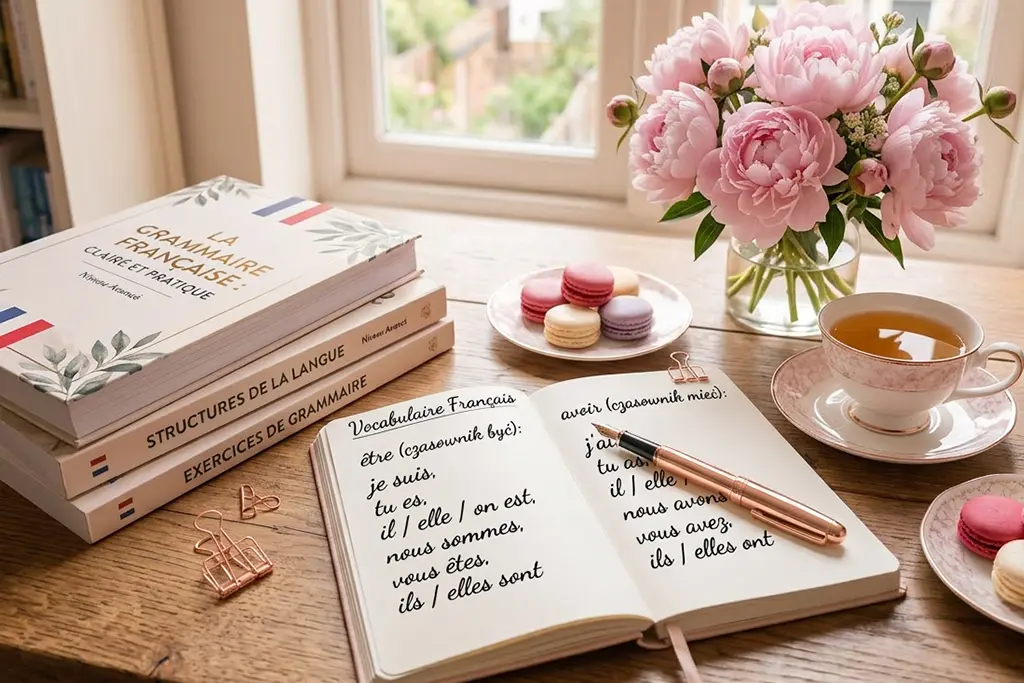 LA
GRAMMAIRE
FRANÇAISE :
CLAIRE ET PRATIQUE
STRUCTURES DE LA LANGUE
EXERCICES DE GRAMMAIRE
Vocabulaire Français
être (czasownik być):
je suis,
tu es,
il / elle / on est,
nous sommes,
vous êtes,
ils / elles sont
avoir (czasownik mieć):
tu as,
il / elle /
nous avons
vous avez,
ils / elles ont